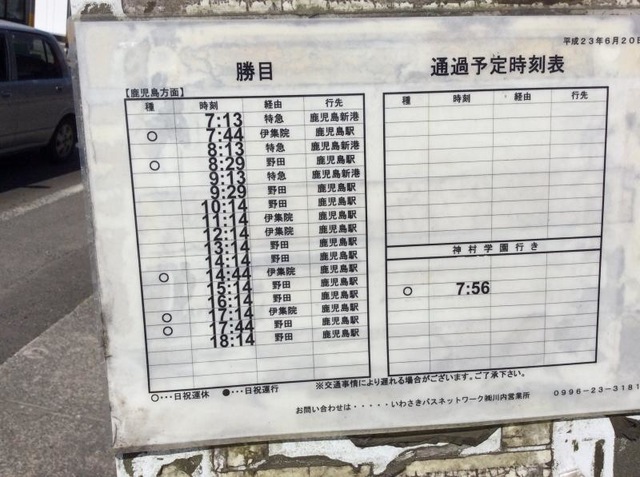 平成23年6月20日
勝目 通過予定時刻表
【鹿児島方面】
種 時刻 経由 行先
7:13 特急 鹿児島新港
○ 7:44 伊集院 鹿児島駅
8:13 特急 鹿児島新港
○ 8:29 野田 鹿児島駅
9:13 特急 鹿児島新港
9:29 野田 鹿児島駅
10:14 野田 鹿児島駅
11:14 伊集院 鹿児島駅
12:14 伊集院 鹿児島駅
13:14 野田 鹿児島駅
14:14 野田 鹿児島駅
○ 14:44 伊集院 鹿児島駅
15:14 野田 鹿児島駅
16:14 野田 鹿児島駅
○ 17:14 伊集院 鹿児島駅
○ 17:44 野田 鹿児島駅
18:14 野田 鹿児島駅
種 時刻 経由 行先
神村学園行き
○ 7:56
○・・・日祝運休 ●・・・日祝運行
※交通事情により遅れる場合がございます。ご了承下さい。
お問い合わせは・・・・・いわさきバスネットワーク㈱川内営業所 0996-23-3181